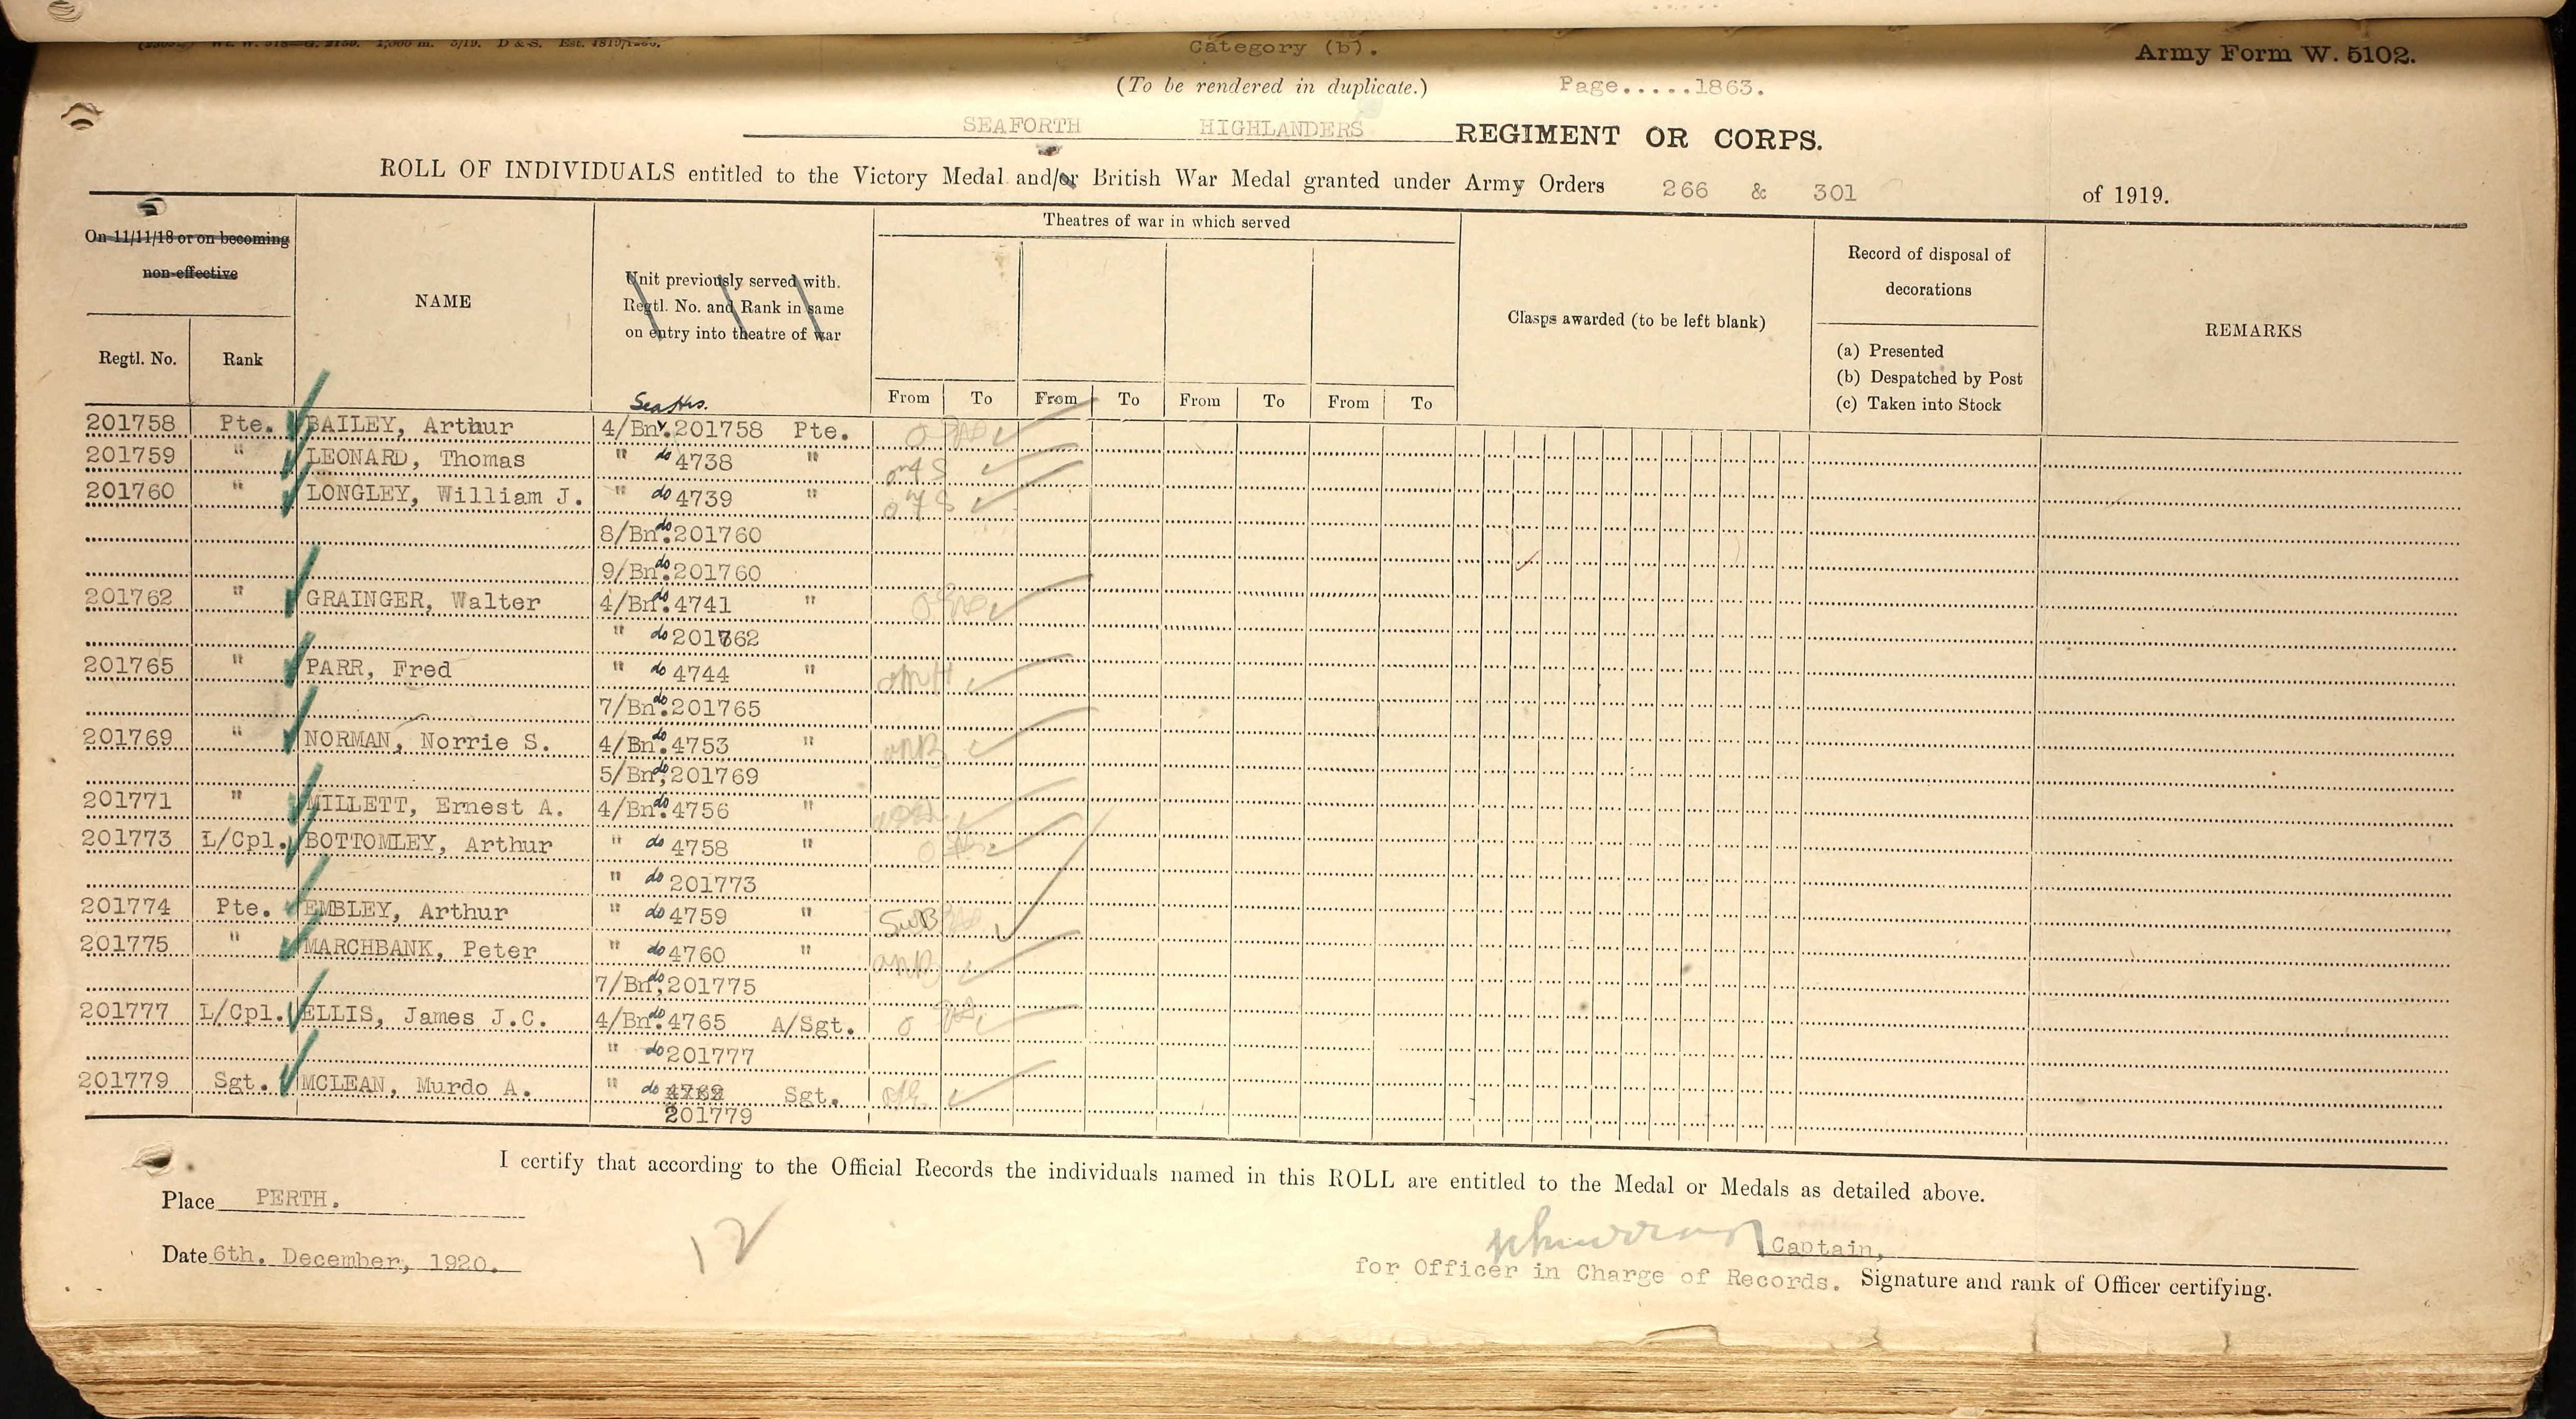 Category (b).
Army Form W. 5102.
(To be rendered in duplicate.) Page.....1863.
SEAFORTH HIGHLANDERS REGIMENT OR CORPS.
ROLL OF INDIVIDUALS entitled to the Victory Medal and/or British War Medal granted under Army Orders 266 & 301 of 1919.
On 11/11/18 or on becoming
non-effective
Regtl. No. Rank
NAME
Unit previously served with.
Regtl. No. and Rank in same
on entry into theatre of war
Theatres of war in which served
From To From To From To From To
Clasps awarded (to be left blank)
Record of disposal of
decorations
(a) Presented
(b) Despatched by Post
(c) Taken into Stock
REMARKS
Seaftrs.
201758 Pte. BAILEY, Arthur 4/Bn. 201758 Pte.
201759 " LEONARD, Thomas " do 4738 "
201760 " LONGLEY, William J. " do 4739 "
8/Bn. do 201760
9/Bn. do 201760
201762 " GRAINGER, Walter 4/Bn. do 4741 "
" do 201762
201765 " PARR, Fred " do 4744 "
7/Bn. do 201765
201769 " NORMAN, Norrie S. 4/Bn. do 4753 "
5/Bn. do 201769
201771 " MILLETT, Ernest A. 4/Bn. do 4756 "
201773 L/Cpl. BOTTOMLEY, Arthur " do 4758 "
" do 201773
201774 Pte. EMBLEY, Arthur " do 4759 "
201775 " MARCHBANK, Peter " do 4760 "
7/Bn. do 201775
201777 L/Cpl. ELLIS, James J.C. 4/Bn. do 4765 A/Sgt.
" do 201777
201779 Sgt. MCLEAN, Murdo A. " do Sgt.
201779
I certify that according to the Official Records the individuals named in this ROLL are entitled to the Medal or Medals as detailed above.
Place PERTH.
Date 6th. December, 1920.
12
Captain,
for Officer in Charge of Records. Signature and rank of Officer certifying.